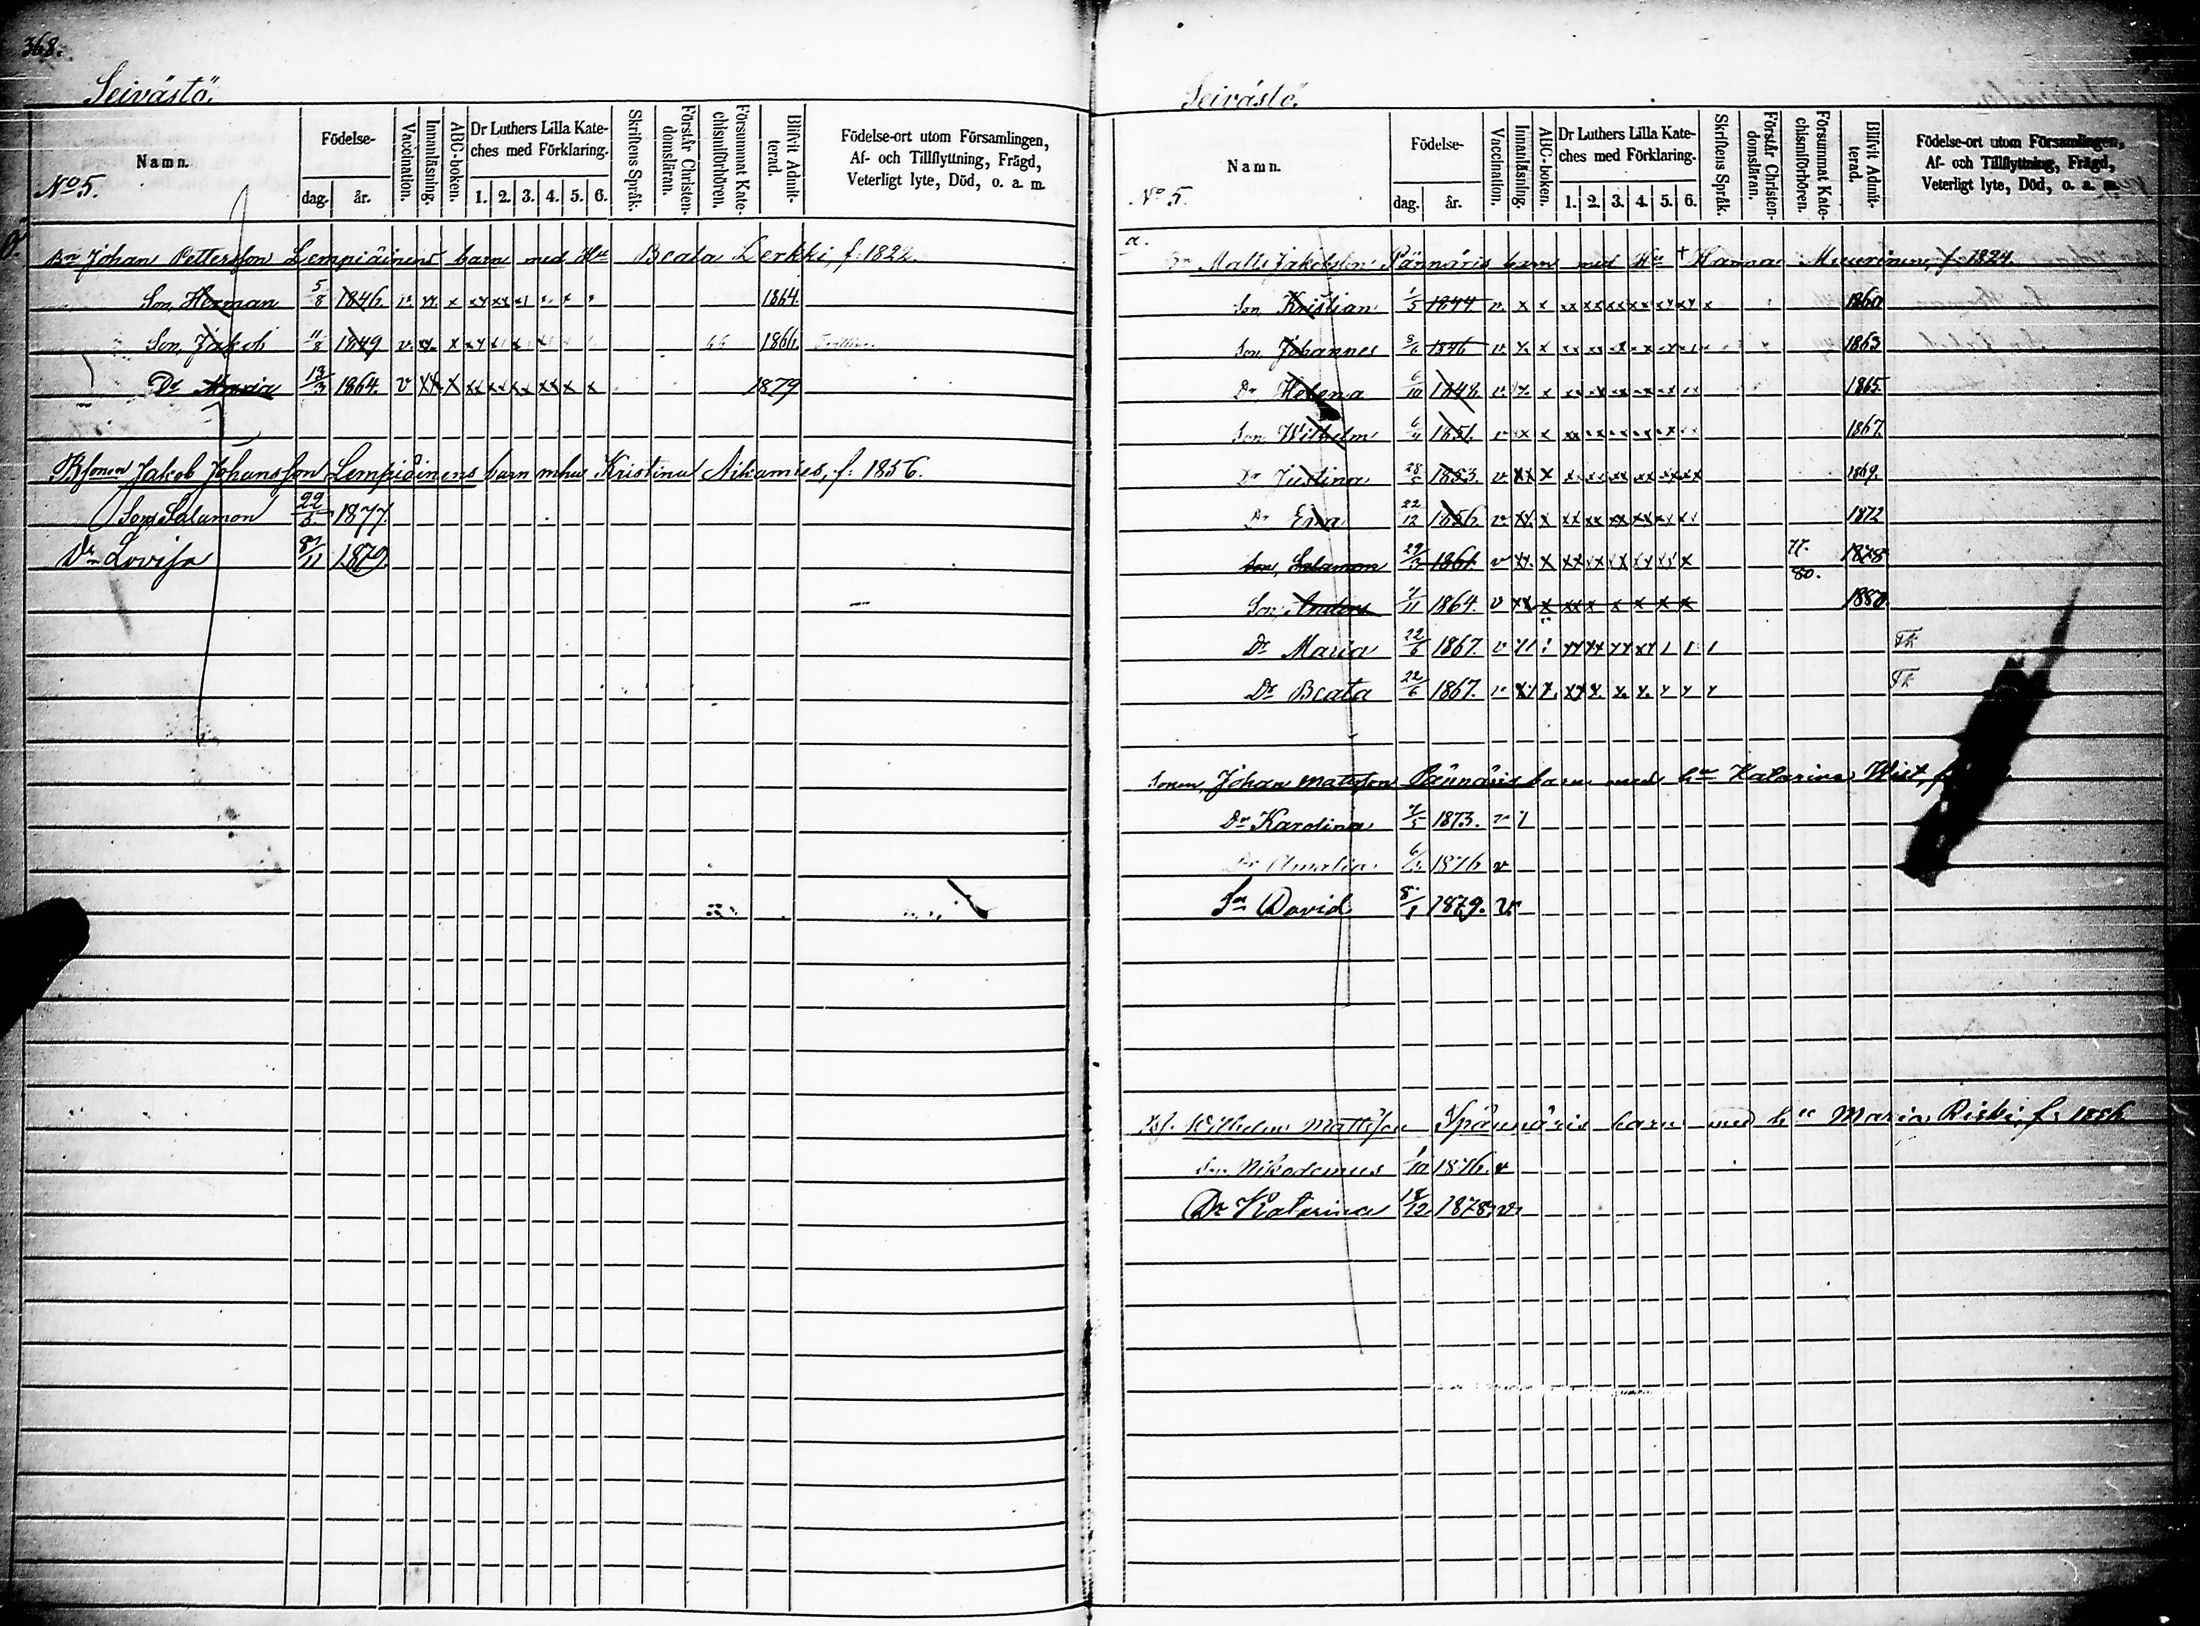 368.
Seivästö.
Namn.
No 5.
Födelse-
dag. år.
Vaccination.
Innanläsning.
ABC-boken.
Dr Luthers Lilla Kate-
ches med Förklaring.
1. 2. 3. 4. 5. 6.
Skriftens Språk.
Förstår Christen-
domsläran.
Försummat Kate-
chismiförhören.
Blifvit Admit-
terad.
Födelse-ort utom Församlingen,
Af- och Tillflyttning, Frägd,
Veterligt lyte, Död, o. a. m.
Bn Johan Pettersson Lempiäinens barn med Hu Beata Lerkki, f. 1822.
Son, Herman 5/8 1846. v. xx. x xx xx x1 x x x 1864.
Son, Jakob 11/8 1849 v. xx. x xx xx x 66 1866.
Dr Maria 13/3 1864. v xx x xx xx xx xx x x 1879
Bsonen Jakob Johansson Lempiäinens barn m hu Kristina Aikamies, f: 1856.
Son, Salamon 22/5 1877.
Dr Lovisa 8/11 1879.
Seivästö.
Namn.
No 5.
Födelse-
dag. år.
Vaccination.
Innanläsning.
ABC-boken.
Dr Luthers Lilla Kate-
ches med Förklaring.
1. 2. 3. 4. 5. 6.
Skriftens Språk.
Förstår Christen-
domsläran.
Försummat Kate-
chismiförhören.
Blifvit Admit-
terad.
Födelse-ort utom Församlingen,
Af- och Tillflyttning, Frägd,
Veterligt lyte, Död, o. a. m.
a.
Bn Matts Jakobsson Pännäris barn med Hu + Hanna Muurinen, f. 1824.
Son, Kristian 1/5 1844. v. x x xx xx xx xx xx xx x 1860
Son Johannes 3/6 1846 v x x xx xx x x x x 1863
Dr Helena 6/10 1848. v. x. x xx xx xx xx xx xx 1865.
Son Wilhelm 6/4 1851. v x x xx xx xx xx xx xx 1867.
Dr Justina 28/5 1853. v xx x xx xx xx xx xx xx 1869.
Dr Eva 22/12 1856 v xx. x xx xx xx xx xx xx 1872
Son, Salamon 29/3 1861. v xx. x xx xx xx xx xx x 77. 80. 1878
Son, Anders 7/11 1864. v xx x xx x x x x x 1880.
Dr Maria 22/6 1867. v
Dr Beata 22/6 1867. v
Sonen, Johan Mattsson Pännäris barn med hu Katarina Wist, f.
Dr Karolina 7/5 1873. v
Dr Amalia 1876 v
Son David 1879. v.
Bsf. Wilhelm Mattsson Spännäris barn med hu Maria Riski, f. 1856
Son Nikodemus 1/10 1876. v
Dr Katarina 18/12 1878. v.